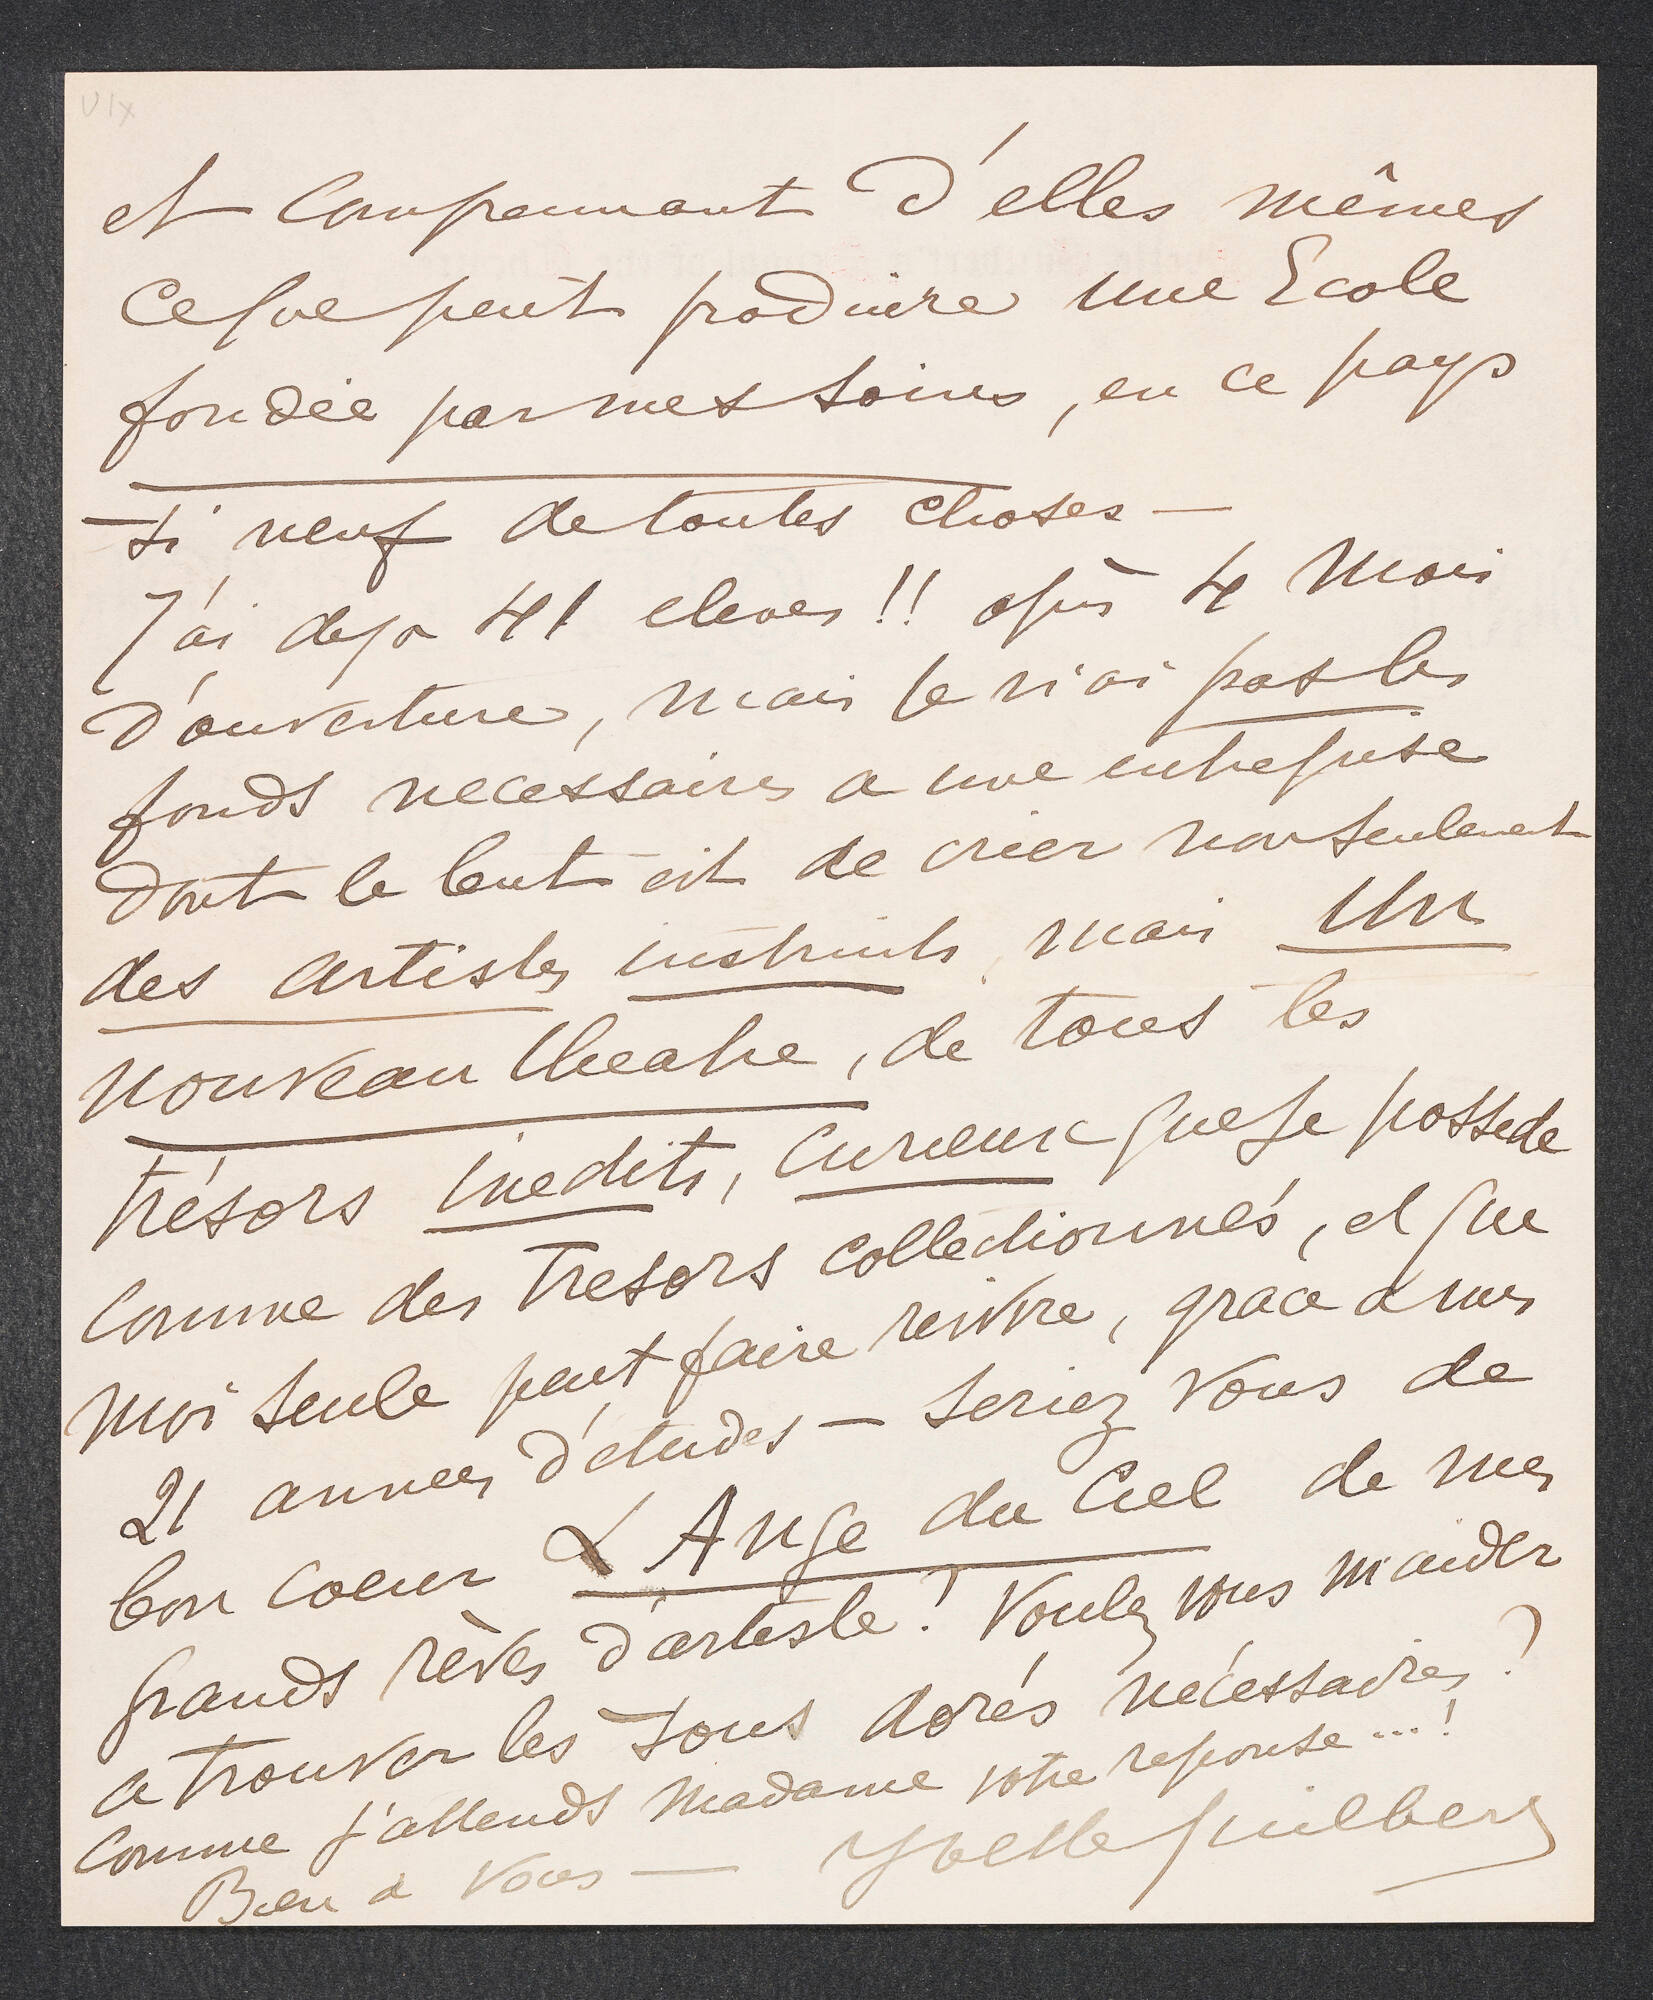 et comprennant d'elles mêmes
ce que peut produire une Ecole
fondée par mes soins, en ce pays
si neuf de toutes choses —
J'ai deja 41 eleves !! après 4 mois
d'ouverture, mais je n'ai pas les
fonds necessaires a une entreprise
dont le but est de créer non seulement
des artistes instruits, mais un
nouveau theatre, de tous les
trésors inedits, curieux que je possede
comme des tresors collectionnés, et que
moi seule peut faire revivre, grace a mes
21 annees d'etudes — seriez vous de
bon coeur L'Ange du Ciel de mes
grands rêves d'artiste ! Voulez vous m'aider
a trouver les sous dorés nécessaires ?
comme j'attends Madame votre reponse ... !
Bien a vous — Yvette Guilbert